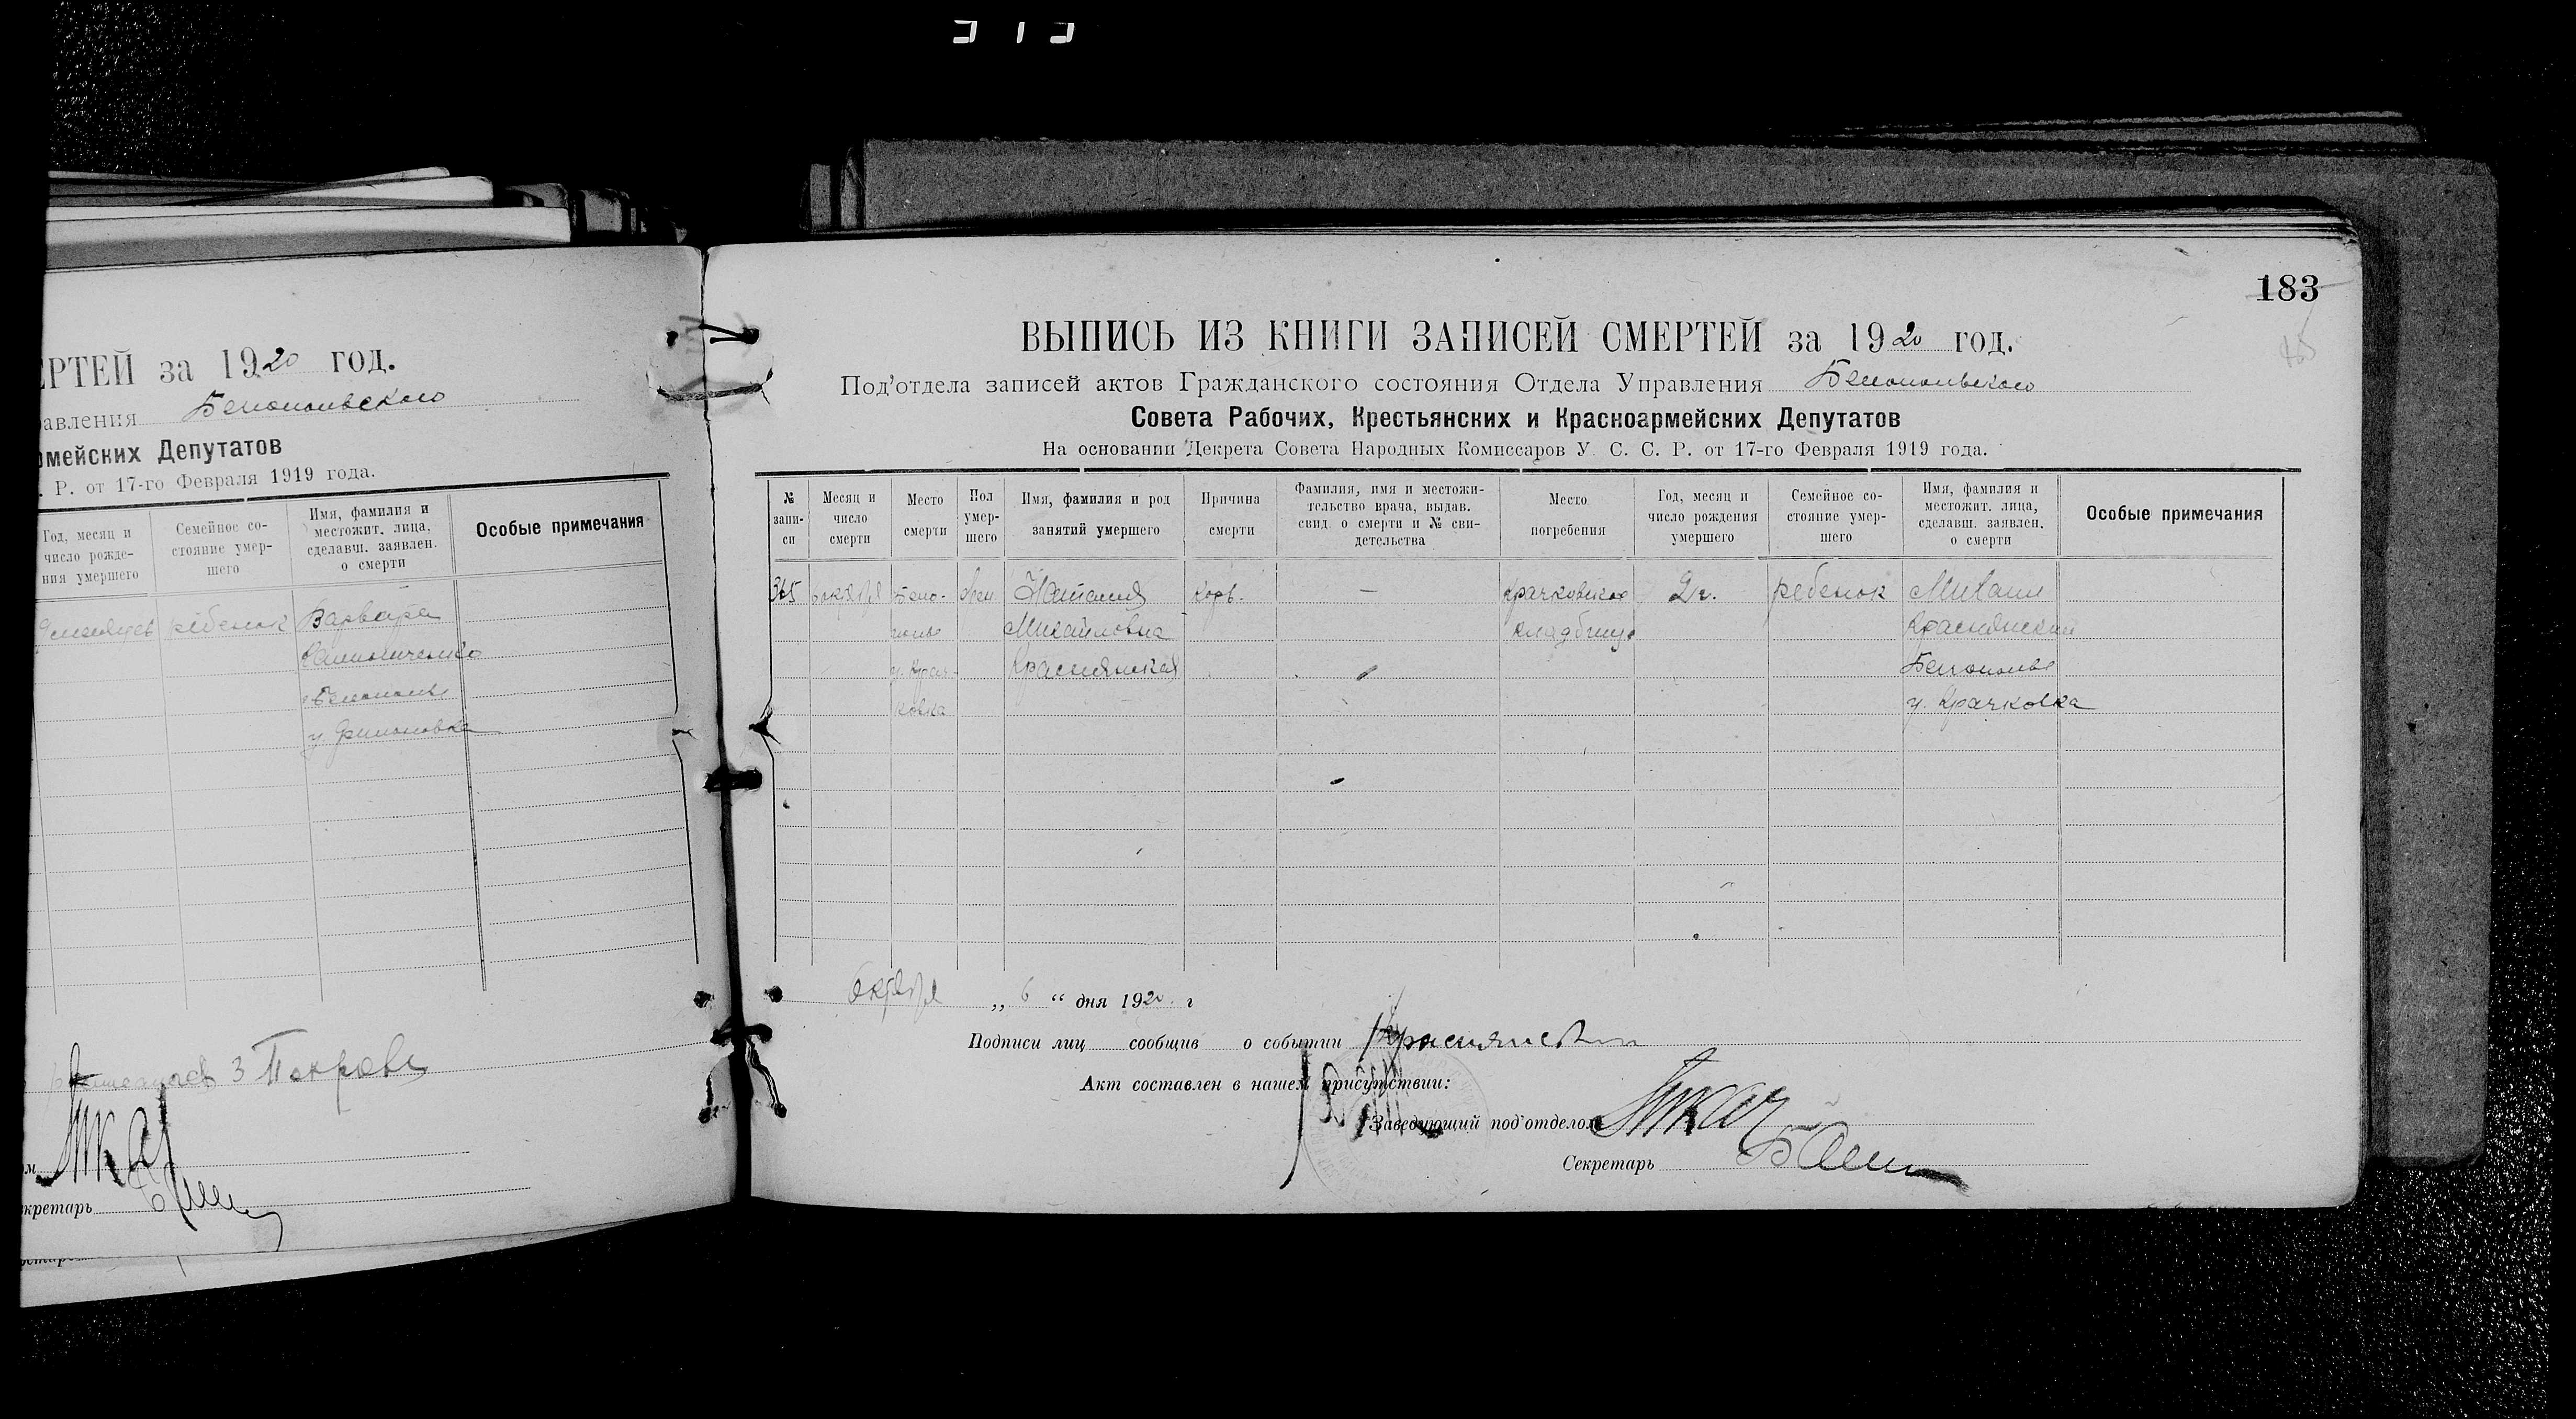 ЕРТЕЙ за 1920 год.
авления Белопольского
мейских Депутатов
. Р. от 17-го Февраля 1919 года.
Год, месяц и число рожде-ния умершего
Семейное со-стояние умер-шего
Имя, фамилия и местожит. лица, сделавш. заявлен. о смерти
Особые примечания
9 месяцев ребенок Варвара
Белополье
3 Покрова
Ткач
кретарь
183
ВЫПИСЬ ИЗ КНИГИ ЗАПИСЕЙ СМЕРТЕЙ за 1920 год.
Под'отдела записей актов Гражданского состояния Отдела Управления Белопольского
Совета Рабочих, Крестьянских и Красноармейских Депутатов
На основании Декрета Совета Народных Комиссаров У. С. С. Р. от 17-го Февраля 1919 года.
№ запи-си
Месяц и число смерти
Место смерти
Пол умер-шего
Имя, фамилия и род занятий умершего
Причина смерти
Фамилия, имя и местожи-тельство врача, выдав. свид. о смерти и № сви-детельства
Место погребения
Год, месяц и число рождения умершего
Семейное со-стояние умер-шего
Имя, фамилия и местожит. лица, сделавш. заявлен. о смерти
Особые примечания
365 6 октября Бело- жен. Наталия корь. — Крачковское 2 г. ребенок Михаил
полье Михайловна кладбище Краснянский
у. Крач- Краснянская Белополье
ковка у. Крачковка
Октября „ 6 “ дня 1920 г
Подписи лиц сообщив о событии Краснянский
Акт составлен в нашем присутствии:
Заведующий под'отделом Ткач
Секретарь